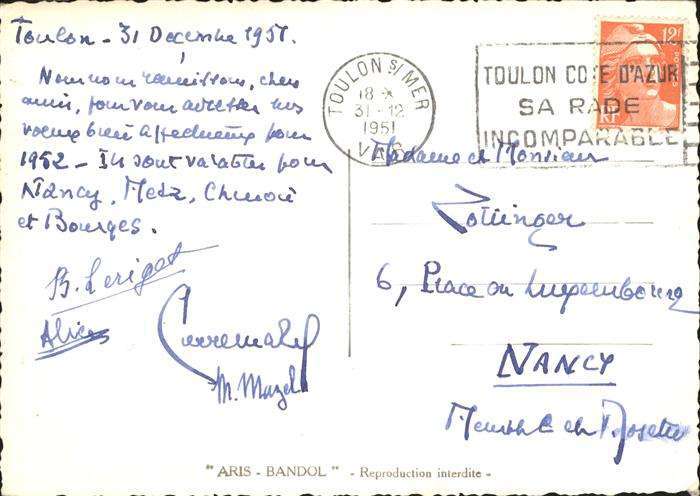 Toulon - 31 Décembre 1951.
Nous nous réunissons, chers
amis, pour vous adresser nos
voeux bien affectueux pour
1952 - Ils sont valables pour
Nancy, Metz, et Bourges.
B. Leriget
Alice
M. Mazel
TOULON S/MER
18
31-12
1951
VAR
TOULON COTE D'AZUR
SA RADE
INCOMPARABLE
12F
RF
Madame et Monsieur
Zollinger
6, Place du Luxembourg
NANCY
Meurthe et Moselle
"ARIS - BANDOL" - Reproduction interdite -